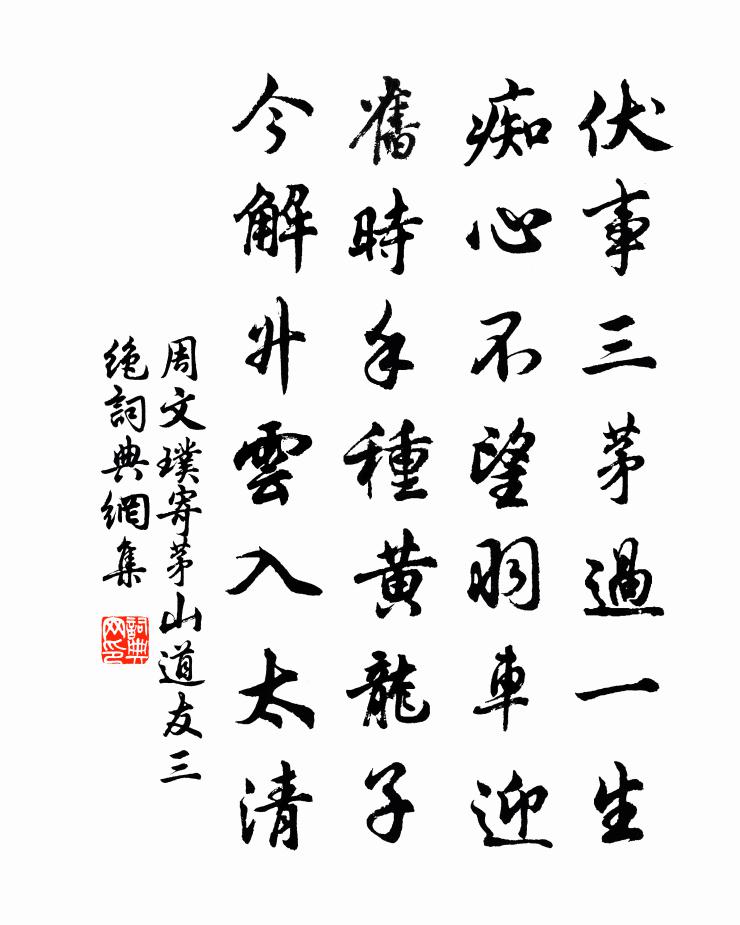 伏事三茅過一生
痴心不望羽車迎
舊時手種黃龍子
今解升雲入太清
周文璞寄茅山道友三
絶詞典網集
詞典
网印